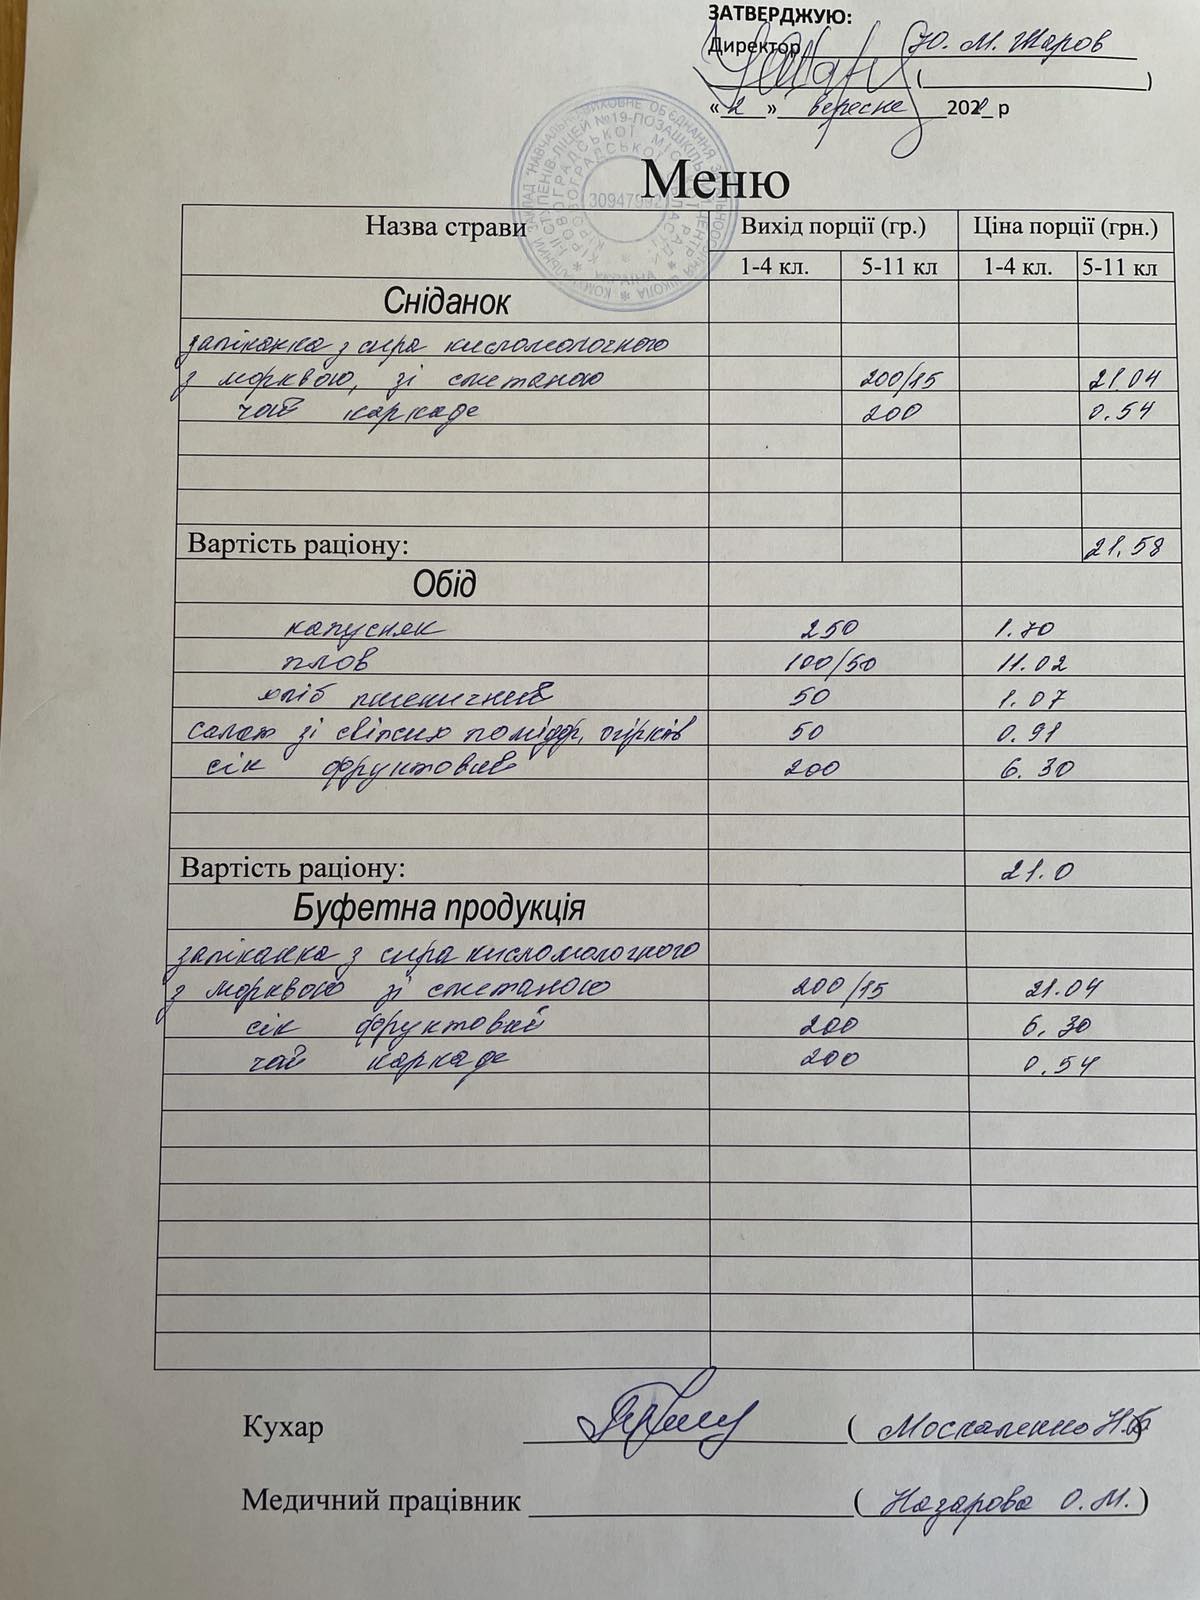 ЗАТВЕРДЖУЮ:
Директор Ю. М. Жаров
( )
« 2 » вересня 202 р
Меню
Назва страви Вихід порції (гр.) Ціна порції (грн.)
1-4 кл. 5-11 кл 1-4 кл. 5-11 кл
Сніданок
запіканка з сира кисломолочного
з морквою, зі сметаною 200/15 21.04
чай каркаде 200 0.54
Вартість раціону: 21.58
Обід
капусняк 250 1.70
плов 100/50 11.02
хліб пшеничний 50 1.07
салат зі свіжих помідор, огірків 50 0.91
сік фруктовий 200 6.30
Вартість раціону: 21.0
Буфетна продукція
запіканка з сира кисломолочного
з морквою зі сметаною 200/15 21.04
сік фруктовий 200 6.30
чай каркаде 200 0.54
Кухар ( Москаленко Н.Б )
Медичний працівник ( Назарова О.М. )